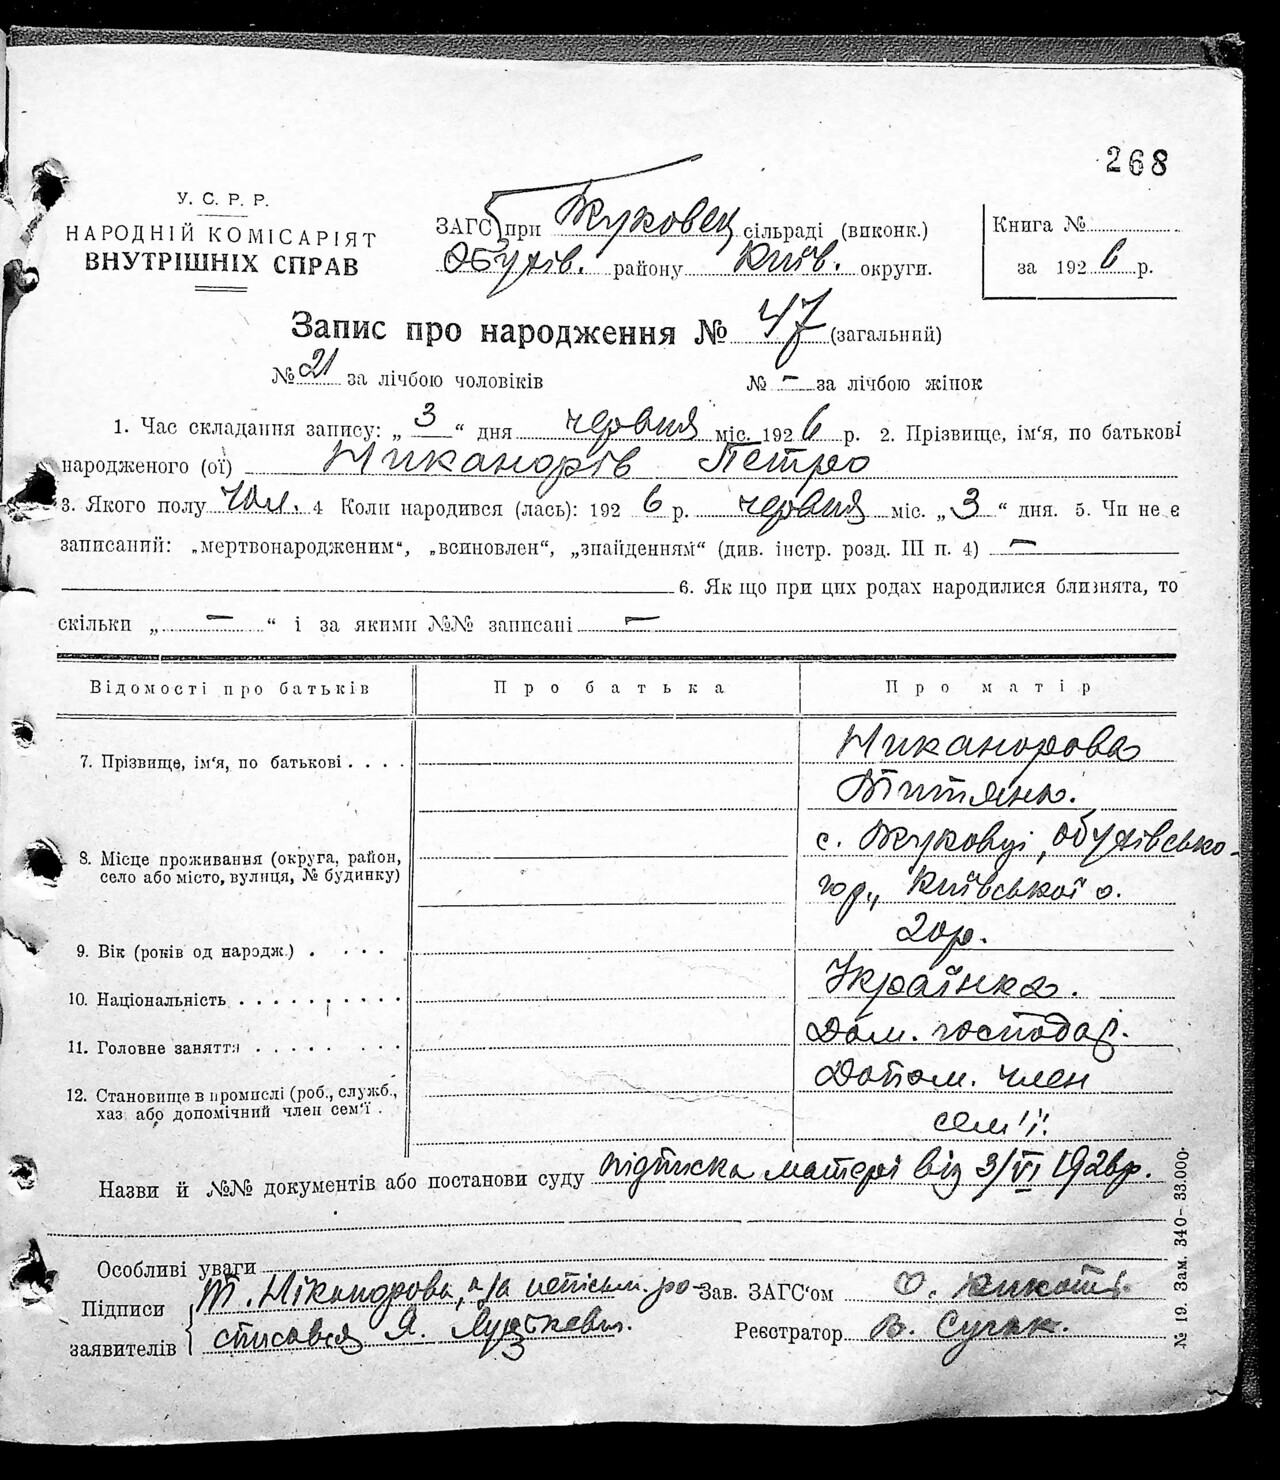 268
У. С. Р. Р.
НАРОДНІЙ КОМІСАРІЯТ
ВНУТРІШНІХ СПРАВ
ЗАГС при Жуковец сільраді (виконк.)
Обухів. району Київ. округи.
Книга №
за 1926 р.
Запис про народження № 47 (загальний)
№ 21 за лічбою чоловіків № - за лічбою жінок
1. Час складання запису: „ 3 “ дня червня міс. 1926 р. 2. Прізвище, ім'я, по батькові
народженого (ої) Никанорів Петро
3. Якого полу чол. 4 Коли народився (лась): 1926 р. червня міс. „ 3 “ дня. 5. Чи не є
записаний: „мертвонародженим“, „всиновлен“, „знайденням“ (див. інстр. розд. III п. 4) —
6. Якщо при цих родах народилися близнята, то
скільки „ — “ і за якими №№ записані —
Відомості про батьків Про батька Про матір
7. Прізвище, ім'я, по батькові . . . . Никанорова
Титяна.
8. Місце проживання (округа, район,
село або місто, вулиця, № будинку)
с. Жуковці, Обухівсько-
го р., Київської о.
9. Вік (років од народж.) . . . . 20 р.
10. Національність . . . . . . . . . . Українка.
11. Головне заняття . . . . . . . . Дом. господар.
12. Становище в промислі (роб., служб.,
хаз або допомічний член сем'ї .
Допом. член
сем'ї.
Назви й №№ документів або постанови суду підписка матері від 3/VI 1926р.
Особливі уваги
Підписи
заявителів
Т. Ніканорова, а за неписьм. ро-
списався Я.
Зав. ЗАГС'ом О.
Реєстратор В. Сугак.
№ 19. Зам. 340–33.000·